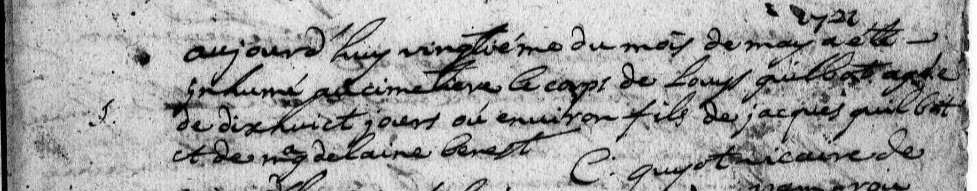 1721
aujourd'huy vingtiéme du mois de may a été
inhumé au cimetiere le corps de Louys quilbot agée
de dixhuict jours ou environ fils de jacques quilbot
et de magdelaine berest
C. guyot vicaire de